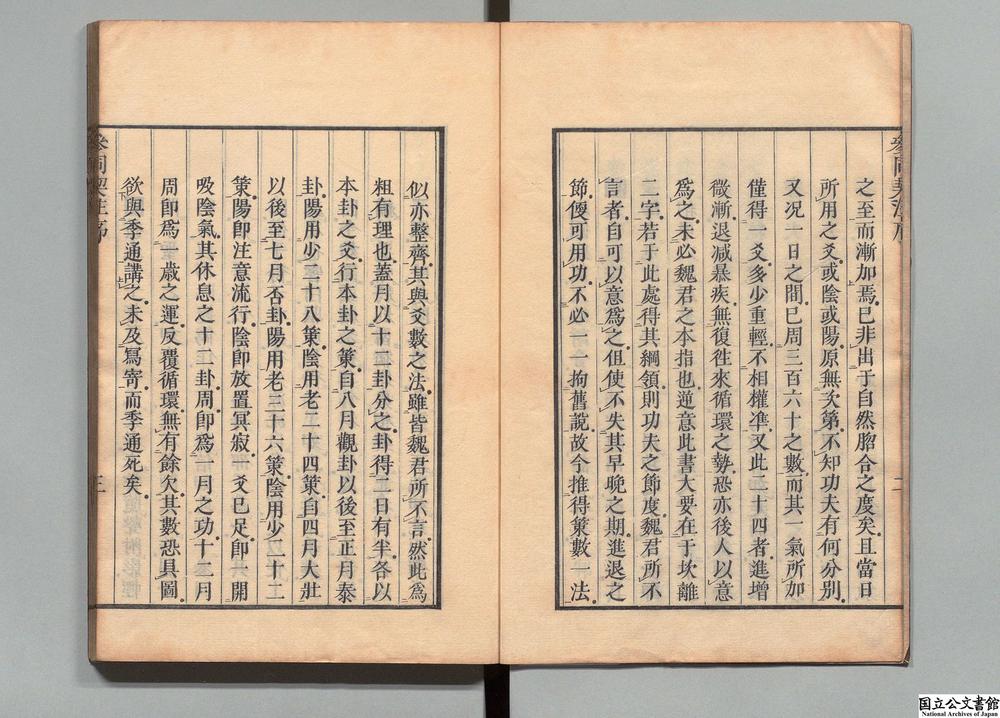 參同契注序
二
之至而漸加焉已非出于自然脗合之度矣且當日
所用之爻或陰或陽原無次第不知功夫有何分別
又况一日之間已周三百六十之數而其一氣所加
僅得一爻多少重輕不相權凖又此二十四者進增
微漸退減暴疾無復徃來循環之勢恐亦後人以意
爲之未必魏君之本指也逆意此書大要在于坎離
二字若于此處得其綱領則功夫之節度魏君所不
言者自可以意爲之但使不失其早晚之期進退之
節便可用功不必一一拘舊說故今推得䇿數一法
似亦整齊其與爻數之法雖皆魏君所不言然此爲
粗有理也蓋月以十二卦分之卦得二日有半各以
本卦之爻行本卦之䇿自八月觀卦以後至正月泰
卦陽用少二十八䇿陰用老二十四䇿自四月大壯
以後至七月否卦陽用老三十六䇿陰用少三十二
䇿陽卽注意流行陰卽放置冥寂一爻已足卽一開
吸陰氣其休息之十二卦周卽爲一月之功十二月
周卽爲一歲之運反覆循環無有餘欠其數恐具圖
欲與季通講之未及寫寄而季通死矣
參同契注序
三
国立公文書館
National Archives of Japan